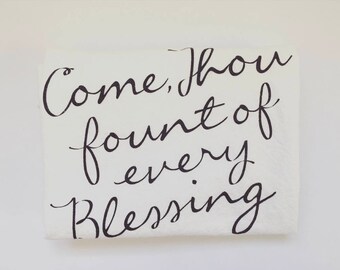 Come, Thou
fount of
every
Blessing